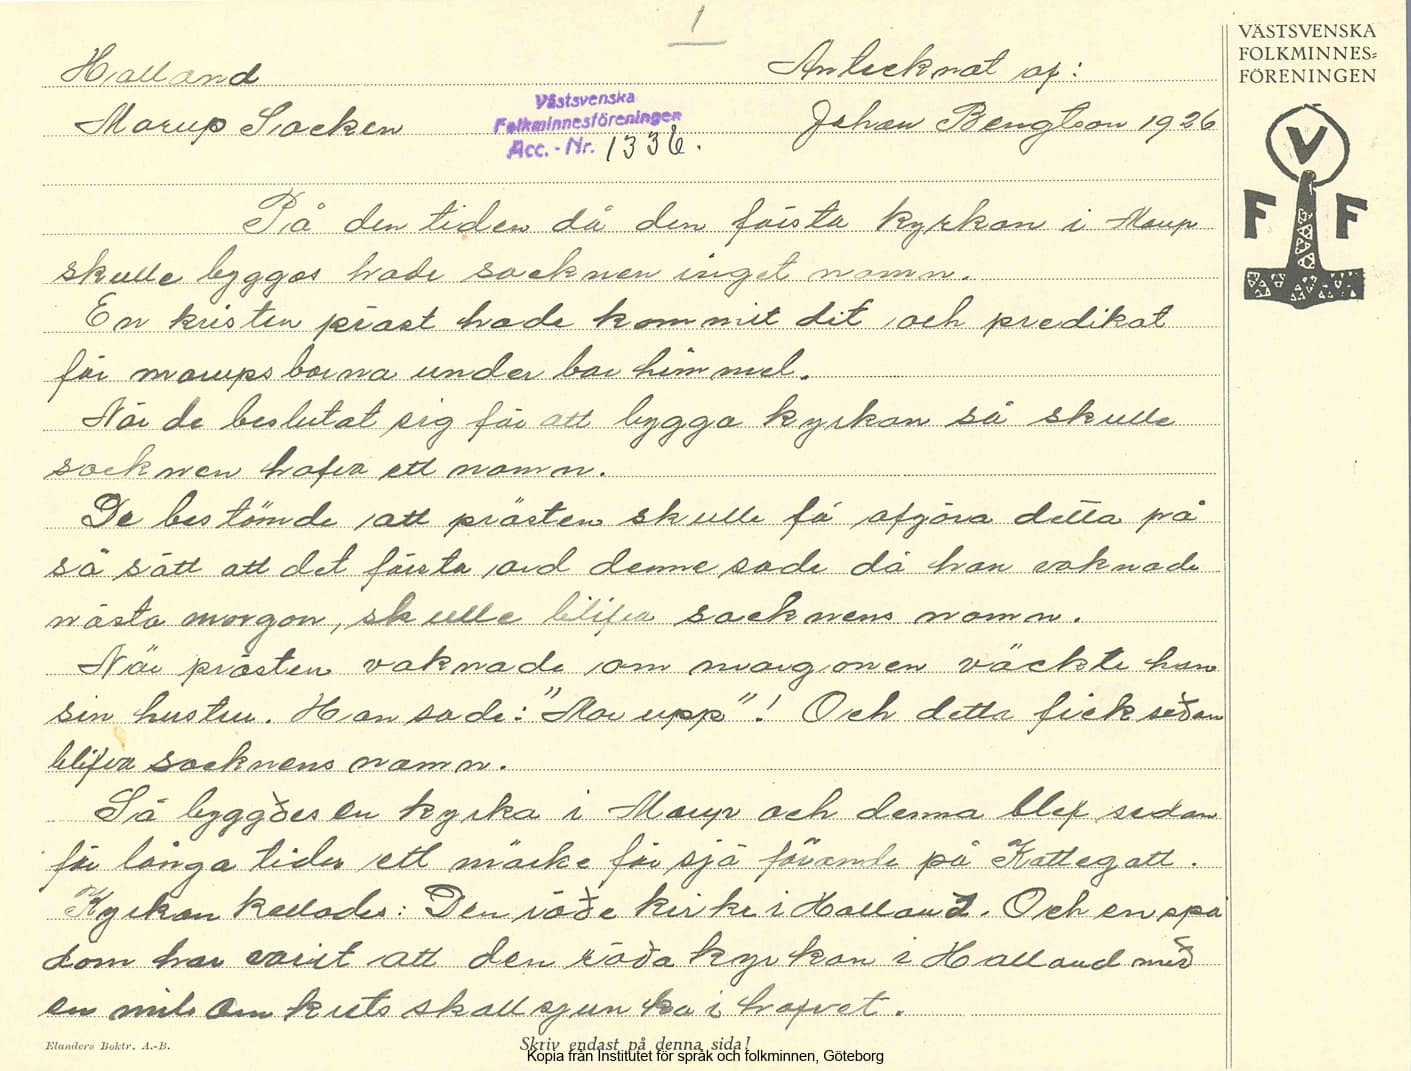 1
VÄSTSVENSKA
FOLKMINNES=
FÖRENINGEN
V
F F
Halland
Antecknat af:
Morup Socken
Västsvenska
Folkminnesföreningen
Acc. - Nr. 1336.
Johan Bengtson 1926
På den tiden då den första kyrkan i Morup
skulle byggas hade socknen inget namn.
En kristen präst hade kommit dit och predikat
för morupsborna under bar himmel.
När de beslutat sig för att bygga kyrkan så skulle
socknen hafva ett namn.
De bestämde att prästen skulle få afgöra detta på
så sätt att det första ord denne sade då han vaknade
nästa morgon, skulle blifva socknens namn.
När prästen vaknade om morgonen väckte han
sin hustru. Han sade: "Mor upp"! Och detta fick sedan
blifva socknens namn.
Så byggdes en kyrka i Morup och denna blef sedan
för långa tider ett märke för sjöfarande på Kattegatt.
Kyrkan kallades: Den röde kirke i Halland. Och en spå
dom har varit att den röda kyrkan i Halland med
en mils om krets skall sjunka i hafvet.
Elanders Boktr. A.-B.
Skriv endast på denna sida!
Kopia från Institutet för språk och folkminnen, Göteborg